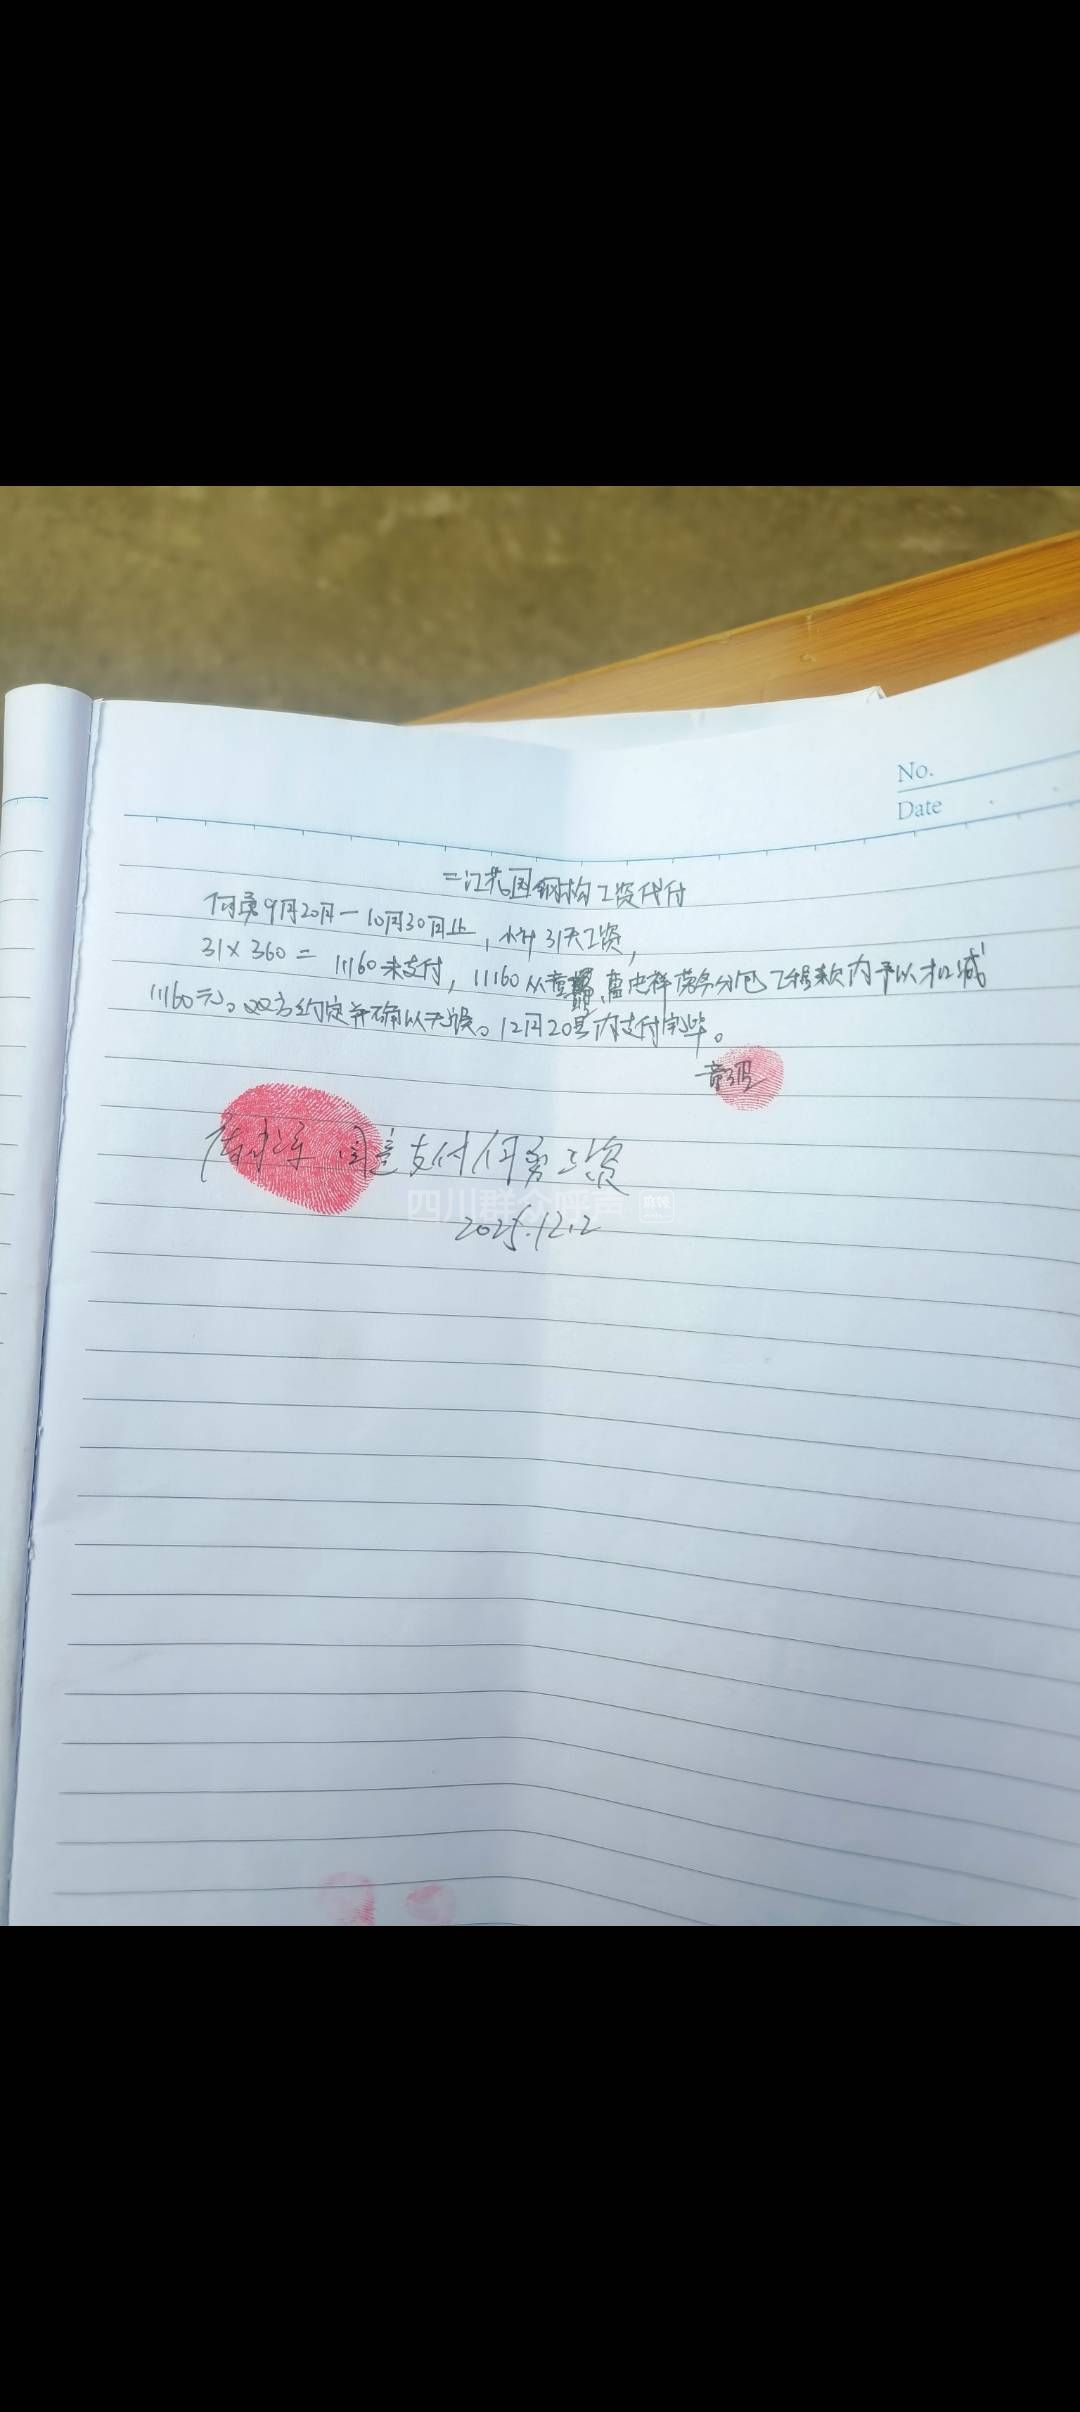 No.
Date
二江花园钢构工资代付
何勇9月20日一10月30日止，小计31天工资，
31×360＝11160未支付，11160从 卢忠祥劳务分包工程款内予以扣减
11160元。双方约定并确认无误。12月20号内支付完毕。
同意支付何勇工资
四川群众呼声
2025.12.2